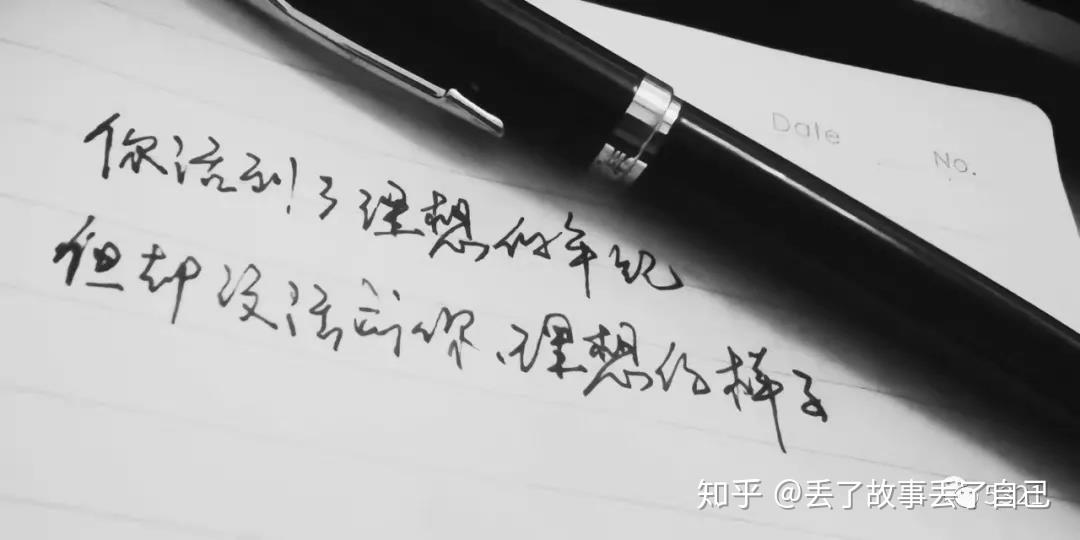 Date
No.
你活到了理想的年纪
但却没活到你理想的样子
知乎 @丢了故事丢了自己